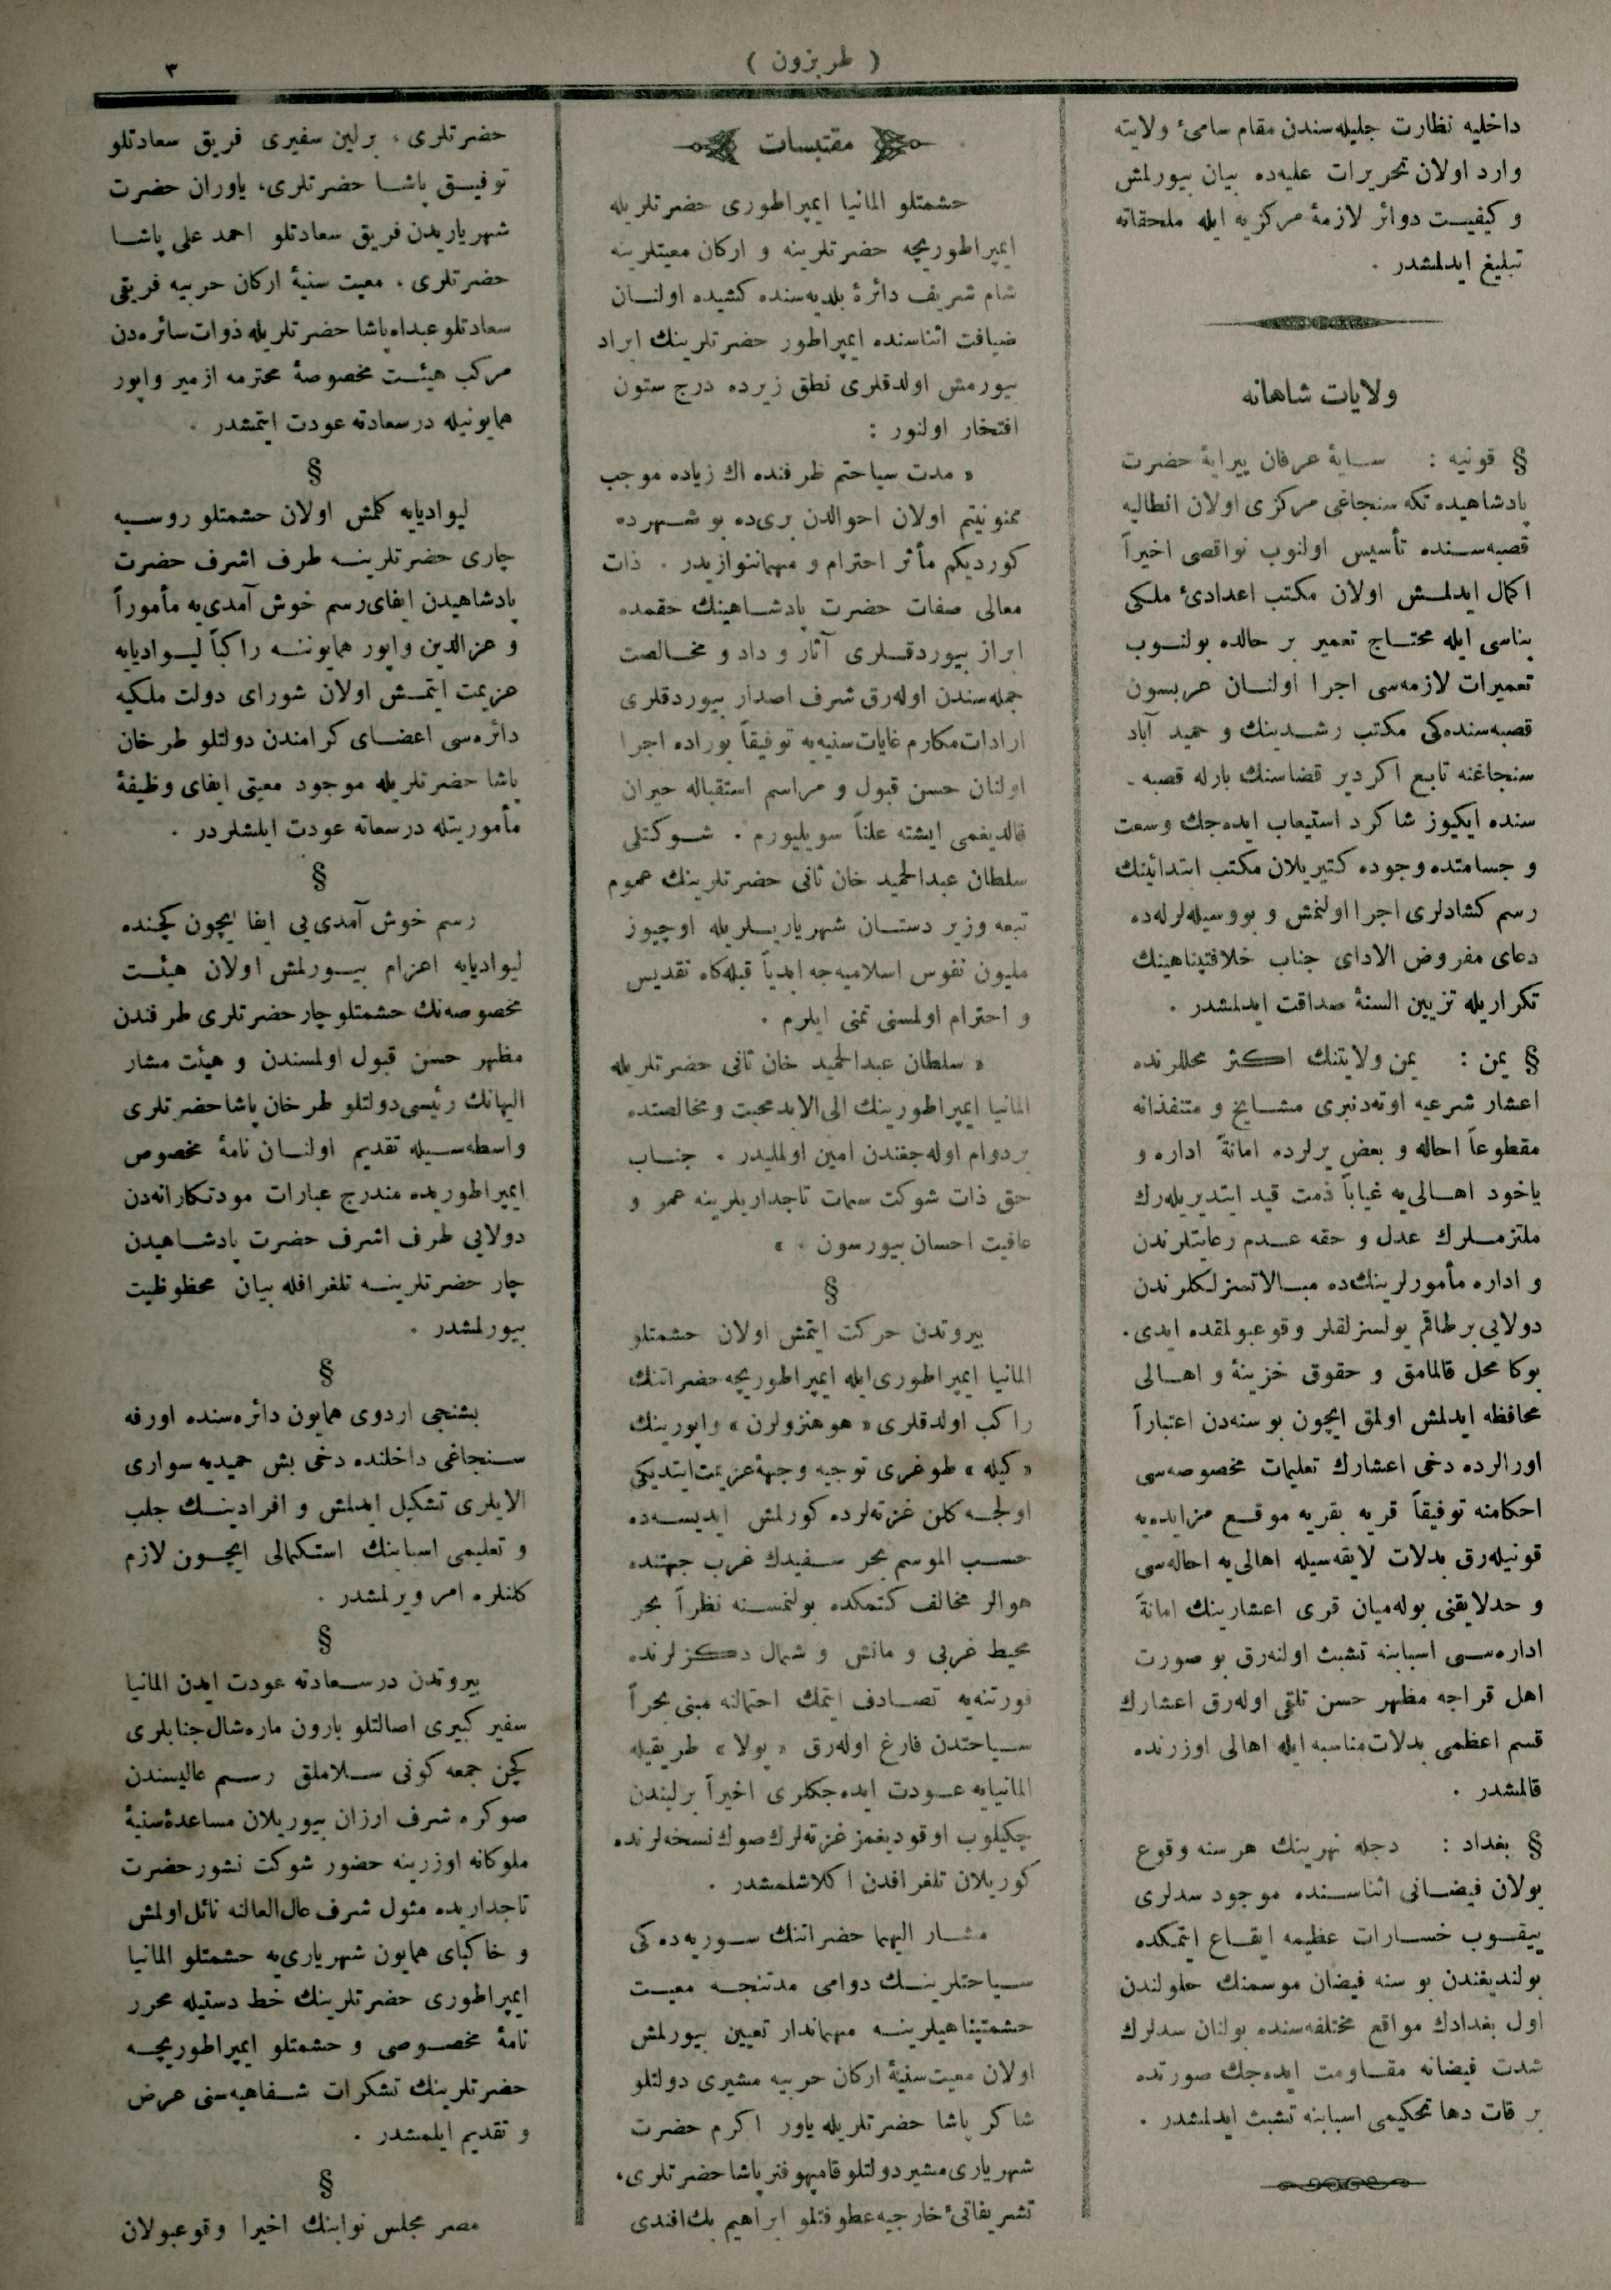 ( طربزون )
٣
داخلیه نظارت جلیله‌سندن مقام سامیٔ ولایته
وارد اولان تحریرات علیه‌ده بیان بیورلمش
و کیفیت دوائر لازمهٔ مرکزیه ایله ملحقاته
تبلیغ ایدلمشدر .
ولایات شاهانه
§ قونیه : سایهٔ عرفان پیرایهٔ حضرت
پادشاهیده تکه سنجاغی مرکزی اولان انطالیه
قصبه‌سنده تأسیس اولنوب نواقصی اخیراً
اکمال ایدلمش اولان مکتب اعدادیٔ ملکی
بناسی ایله محتاج تعمیر بر حالده بولنوب
تعمیرات لازمه‌سی اجرا اولنان
قصبه‌سنده‌کی مکتب رشدینك و حمید آباد
سنجاغنه تابع اکردیر قضاسنك بارله قصبه -
سنده ایکیوز شاکرد استیعاب ایده‌جك وسعت
و جسامتده وجوده کتیریلان مکتب ابتدائینك
رسم کشادلری اجرا اولنمش و بووسیله‌لرله‌ده
دعای مفروض الادای جناب خلافتپناهینك
تکراریله تزیین السنهٔ صداقت ایدلمشدر .
§ یمن : یمن ولایتنك اکثر محللرنده
اعشار شرعیه اوته‌دنبری مشایخ و متنفذانه
مقطوعاً احاله و بعض یرلرده امانةً اداره و
یاخود اهالی‌یه غیاباً ذمت قید ایتدیریله‌رك
ملتزملرك عدل و حقه عدم رعایتلرندن
و اداره مأمورلرینك‌ده مبالاتسزلکلرندن
دولایی برطاقم یولسزلقلر وقوعبولمقده ایدی.
بوکا محل قالمامق و حقوق خزینهٔ و اهالی
محافظه ایدلمش اولمق ایچون بوسنه‌دن اعتباراً
اورالرده دخی اعشارك تعلیمات مخصوصه‌سی
احکامنه توفیقاً قریه بقریه موقع مزایده‌یه
قونیله‌رق بدلات لایقه‌سیله اهالی‌یه احاله‌سی
و حدلایقنی بوله‌میان قری اعشارینك امانةً
اداره‌سی اسبابنه تشبث اولنه‌رق بو صورت
اهل قراجه مظهر حسن تلقی اوله‌رق اعشارك
قسم اعظمی بدلات مناسبه ایله اهالی اوزرنده
قالمشدر .
§ بغداد : دجله نهرینك هر سنه وقوع
بولان فیضانی اثناسنده موجود سدلری
ییقوب خسارات عظیمه ایقاع ایتمکده
بولندیغندن بو سنه فیضان موسمنك حلولندن
اول بغدادك مواقع مختلفه‌سنده بولنان سدلرك
شدت فیضانه مقاومت ایده‌جك صورتده
بر قات دها تحکیمی اسبابنه تشبث ایدلمشدر .
مقتبسات
حشمتلو المانیا ایمپراطوری حضرتلریله
ایمپراطوریچه حضرتلرینه و ارکان معیتلرینه
شام شریف دائرهٔ بلدیه‌سنده کشیده اولنان
ضیافت اثناسنده ایمپراطور حضرتلرینك ایراد
بیورمش اولدقلری نطق زیرده درج ستون
افتخار اولنور :
« مدت سیاحتم ظرفنده اك زیاده موجب
ممنونیتم اولان احوالدن بری‌ده بو شهرده
کوردیکم مأثر احترام و مهماننوازیدر . ذات
معالی صفات حضرت پادشاهینك حقمده
ابراز بیوردقلری آثار و داد و مخالصت
جمله‌سندن اوله‌رق شرف اصدار بیوردقلری
ارادات مکارم غایات سنیه‌یه توفیقاً بوراده اجرا
اولنان حسن قبول و مراسم استقباله حیران
قالدیغمی ایشته علناً سویلیورم . شوکتلی
سلطان عبدالحمید خان ثانی حضرتلرینك عموم
تبعه وزیر دستان شهریاریلریله اوچیوز
ملیون نفوس اسلامیه‌جه ابدیاً قبله‌کاه تقدیس
و احترام اولمسنی تمنی ایلرم .
« سلطان عبدالحمید خان ثانی حضرتلریله
المانیا ایمپراطورینك الی‌الابد محبت و مخالصتده
بردوام اوله‌جغندن امین اولملیدر . جناب
حق ذات شوکت سمات تاجداریلرینه عمر و
عافیت احسان بیورسون . »
§
بیروتدن حرکت ایتمش اولان حشمتلو
المانیا ایمپراطوری‌ایله ایمپراطوریچه حضراتنك
راکب اولدقلری « هوهنزولرن » واپورینك
« کیله » طوغری توجیه وجههٔ عزیمت‌ایتدیکی
اولجه کلن غزته‌لرده کورلمش ایدیسه‌ده
حسب الموسم بحر سفیدك غرب جهتنده
هوالر مخالف کتمکده بولنمسنه نظراً بحر
محیط غربی و مانش و شمال دکزلرنده
فورتنه‌یه تصادف ایتمك احتمالنه مبنی بحراً
سیاحتدن فارغ اوله‌رق « پولا » طریقیله
المانیایه عودت ایده‌جکلری اخیراً برلیندن
چکیلوب اوقودیغمز غزته‌لرك صوك نسخه‌لرنده
کوریلان تلغرافدن اکلاشلمشدر .
مشار الیهما حضراتنك سوریه‌ده‌کی
سیاحتلرینك دوامی مدتنجه معیت
حشمتپناهیلرینه مهماندار تعیین بیورلمش
اولان معیت سنیهٔ ارکان حربیه مشیری دولتلو
شاکر پاشا حضرتلریله یاور اکرم حضرت
شهریاری مشیر دولتلو قامپهوفنر پاشا حضرتلری،
تشریفاتیٔ خارجیه عطوفتلو ابراهیم بك‌افندی
حضرتلری ، برلین سفیری فریق سعادتلو
توفیق پاشا حضرتلری، یاوران حضرت
شهریاریدن فریق سعادتلو احمد علی پاشا
حضرتلری ، معیت سنیهٔ ارکان حربیه فریقی
سعادتلو عبداه پاشا حضرتلریله ذوات سائره‌دن
مرکب هیئت مخصوصهٔ محترمه ازمیر واپور
همایونیله درسعادته عودت ایتمشدر .
§
لیوادیایه کلمش اولان حشمتلو روسیه
چاری حضرتلرینه طرف اشرف حضرت
پادشاهیدن ایفای رسم خوش آمدی‌یه مأموراً
و عزالدین واپور همایوننه راکباً لیوادیایه
عزیمت ایتمش اولان شورای دولت ملکیه
دائره‌سی اعضای کرامندن دولتلو طرخان
پاشا حضرتلریله موجود معیتی ایفای وظیفهٔ
مأموریتله درسعاته عودت ایلمشلردر .
§
رسم خوش آمدی‌یی ایفا ایچون کچنده
لیوادیایه اعزام بیورلمش اولان هیئت
مخصوصه‌نك حشمتلو چار حضرتلری طرفندن
مظهر حسن قبول اولمسندن و هیئت مشار
الیهانك رئیسی دولتلو طرخان پاشا حضرتلری
واسطه‌سیله تقدیم اولنان نامهٔ مخصوص
ایمپراطوریده مندرج عبارات مودتکارانه‌دن
دولایی طرف اشرف حضرت پادشاهیدن
چار حضرتلرینه تلغرافله بیان محظوظیت
بیورلمشدر .
§
بشنجی اردوی همایون دائره‌سنده اورفه
سنجاغی داخلنده دخی بش حمیدیه سواری
الایلری تشکیل ایدلمش و افرادینك جلب
و تعلیمی اسبابنك استکمالی ایچون لازم
کلنلره امر ویرلمشدر .
§
بیروتدن درسعادته عودت ایدن المانیا
سفیر کبیری اصالتلو بارون ماره‌شال جنابلری
کچن جمعه کونی سلاملق رسم عالیسندن
صوکره شرف ارزان بیوریلان مساعدهٔ سنیهٔ
ملوکانه اوزرینه حضور شوکت نشور حضرت
تاجداریده مثول شرف عال‌العالنه نائل اولمش
و خاکپای همایون شهریاری‌یه حشمتلو المانیا
ایمپراطوری حضرتلرینك خط دستیله محرر
نامهٔ مخصوصی و حشمتلو ایمپراطوریچه
حضرتلرینك تشکرات شفاهیه‌سنی عرض
و تقدیم ایلمشدر .
§
مصر مجلس نوابنك اخیرا وقوعبولان